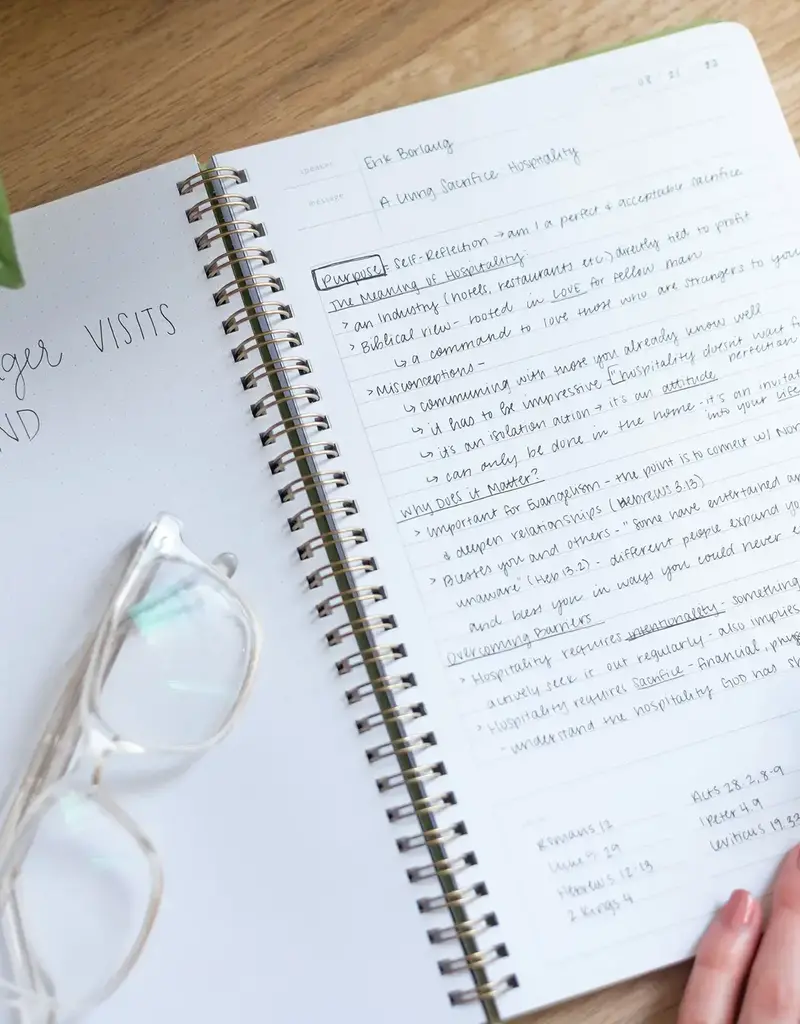 VISITS
08 21 22
SPEAKER Erik Borlaug
MESSAGE A Living Sacrifice Hospitality
Purpose: Self-Reflection → am I a perfect & acceptable sacrifice
The Meaning of Hospitality:
> an Industry (hotels, restaurants etc.) directly tied to profit
> Biblical view - rooted in LOVE for fellow man
↳ a command to love those who are strangers to you
> Misconceptions -
↳ communing with those you already know well
↳ it has to be impressive ["hospitality doesn't wait for
perfection
↳ it's an isolation action → it's an attitude
↳ can only be done in the home - it's an
into your life
Why Does it Matter?
> Important for Evangelism - the point is to connect w/ Non
& deepen relationships (Hebrews 3.13)
> Blesses you and others - "Some have entertained
unaware" (Heb 13.2) - different people expand
and bless you in ways you could never
Overcoming Barriers
> Hospitality requires intentionality - something
actively seek it out regularly - also implies
> Hospitality requires Sacrifice - financial,
- understand the hospitality God has
Romans 12
Acts 28.2, 8-9
1 Peter 4.9
Hebrews 12-13
Leviticus 19.33
2 Kings 4